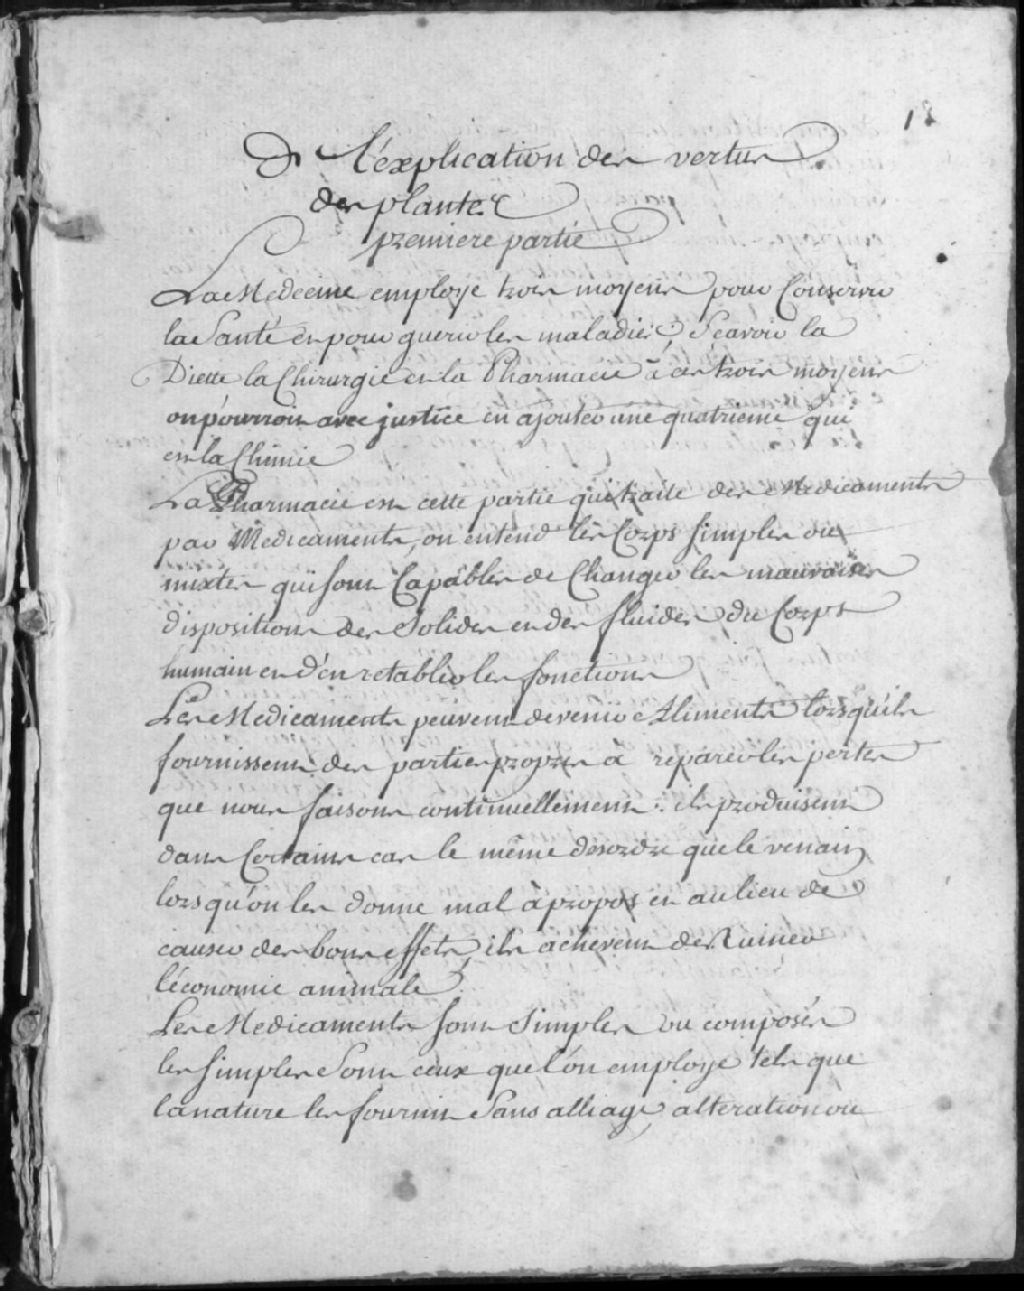 18
De l'éxplication des vertus
des plantes
premiere partie
La Medecine employe trois moyens pour Conserver
la Santé et pour guerir les maladies, Scavoir la
Diette la Chirurgie et la Pharmacie à ces trois moyens
on pourroit avec justice en ajouter une quatrieme qui
est la Chimie
La Pharmacie est cette partie qui traite des Medicaments
par Medicaments, on entend les Corps simples ou
mixtes qui sont Capables de Changer les mauvaises
dispositions des Solides et des fluides du Corps
humain et d'en retablir les fonctions
Les Medicaments peuvent devenir Aliments lorsqu'ils
fournissent des parties propres a réparer les pertes
que nous faisons continuellement. ils produisent
dans Certains cas le même desordre que le venain
lorsqu'on les donne mal à propos et au lieu de
causer des bons effets, ils achevent de Ruiner
l'économie animale
Les Medicaments sont Simples ou composés
les simples Sont ceux que l'on employe tels que
la nature les fournit Sans alliage, alteration ou